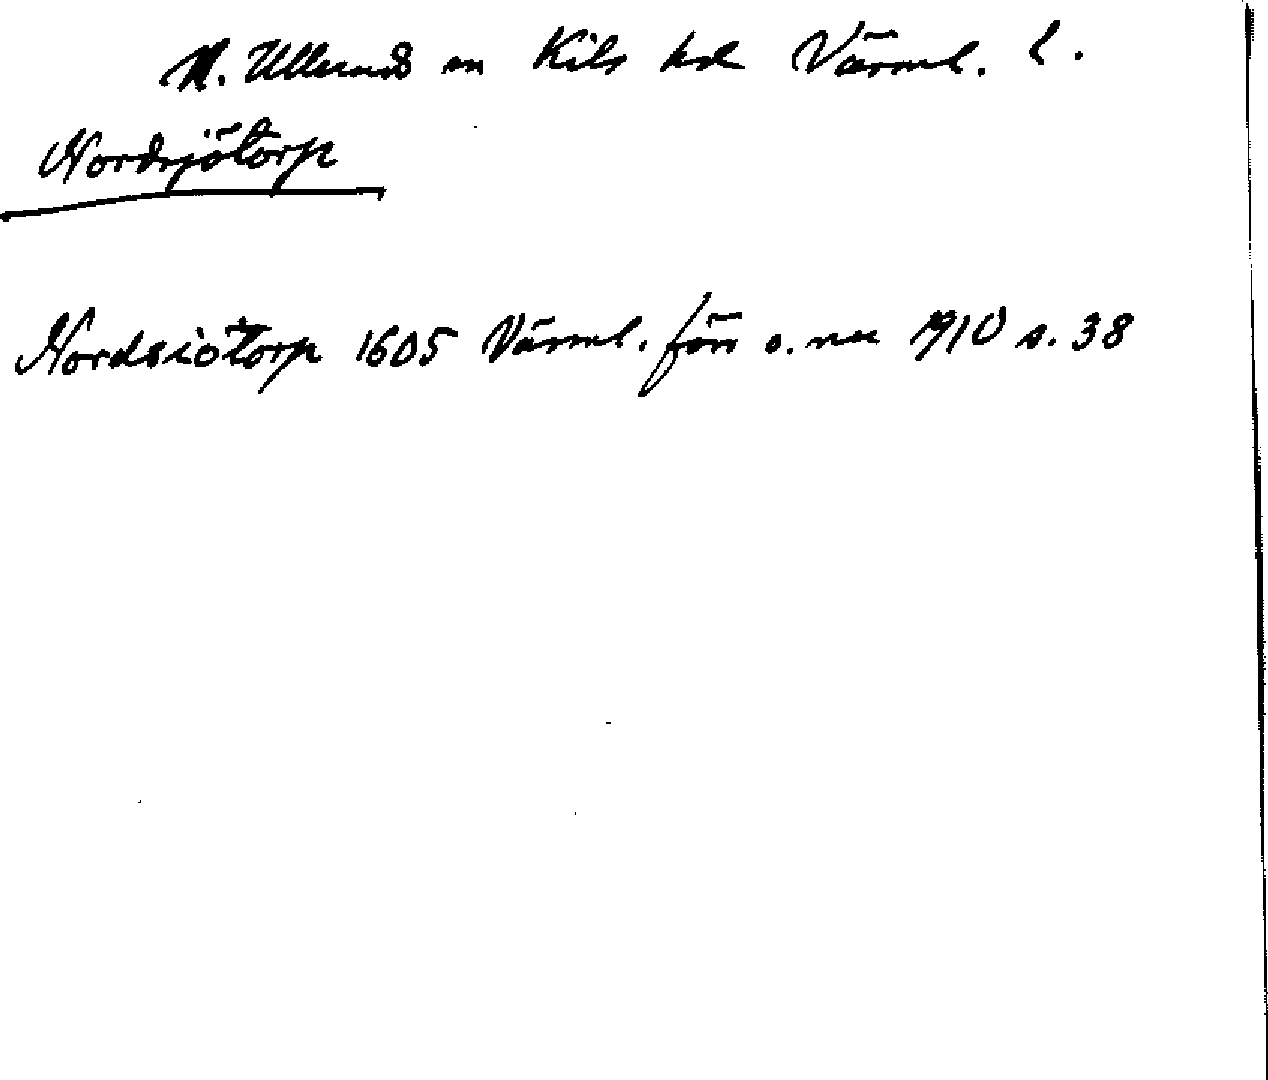 N. Ullerud sn Kils hd Värml. L.
Nordsjötorp
Nordsiötorp 1605 Värml. förr o. nu 1910 s. 38